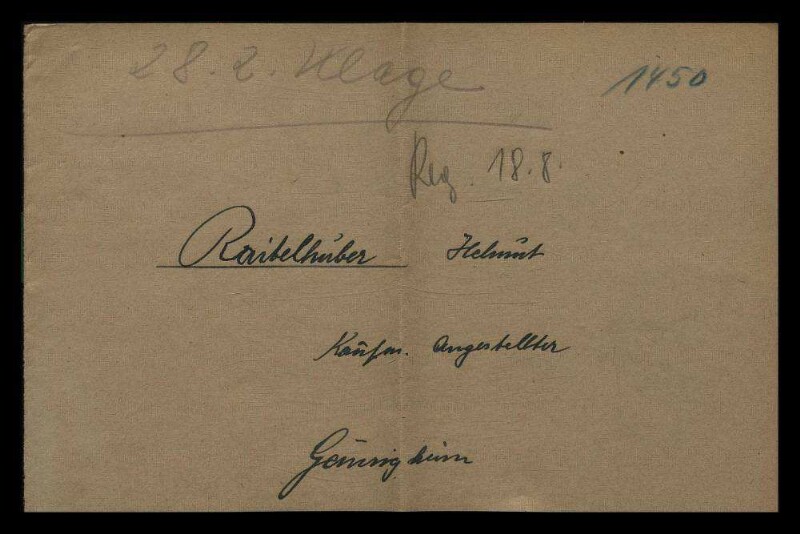 28. 2. Klage
1450
Reg. 18. 8.
Raitelhuber Helmut
Kaufm. Angestellter
Gemmrigheim